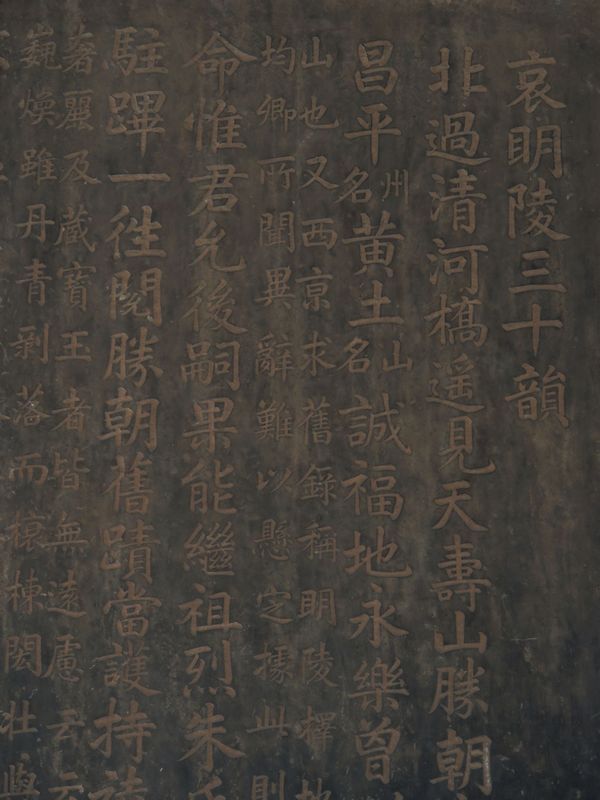 哀明陵三十韻
北過清河橋遥見天壽山勝朝
昌平州名黃土山名誠福地永樂曾
山也又西京求舊錄稱明陵擇
均卿所聞異辭難以懸定據此則
命惟君允後嗣果能繼祖烈朱
駐蹕一徃閱勝朝舊蹟當護持
奢麗及藏寶王者皆無遠慮云云
巍煥雖丹青剝落而榱棟閎壯